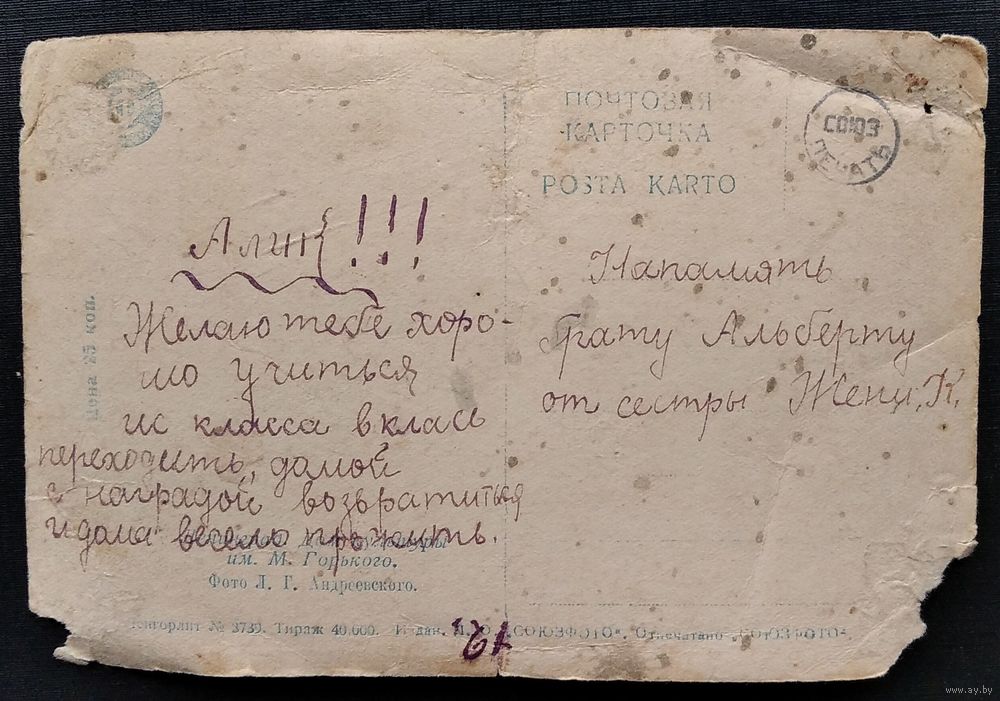 ПОЧТОВАЯ
КАРТОЧКА
POSTA KARTO
СОЮЗ
ПЕЧАТЬ
Алик!!!
Желаю тебе хоро-
шо учиться
ис класса в клась
переходить, домой
с наградой возвратиться
и дома весело прожить.
Напамять
брату Альберту
от сестры Жени. К.
Цена 25 коп.
культуры
им. М. Горького.
Фото Л. Г. Андреевского.
Ленгорлит № 3739. Тираж 40.000. Издан. „СОЮЗФОТО“. Отпечатано „СОЮЗФОТО“.
www.ay.by